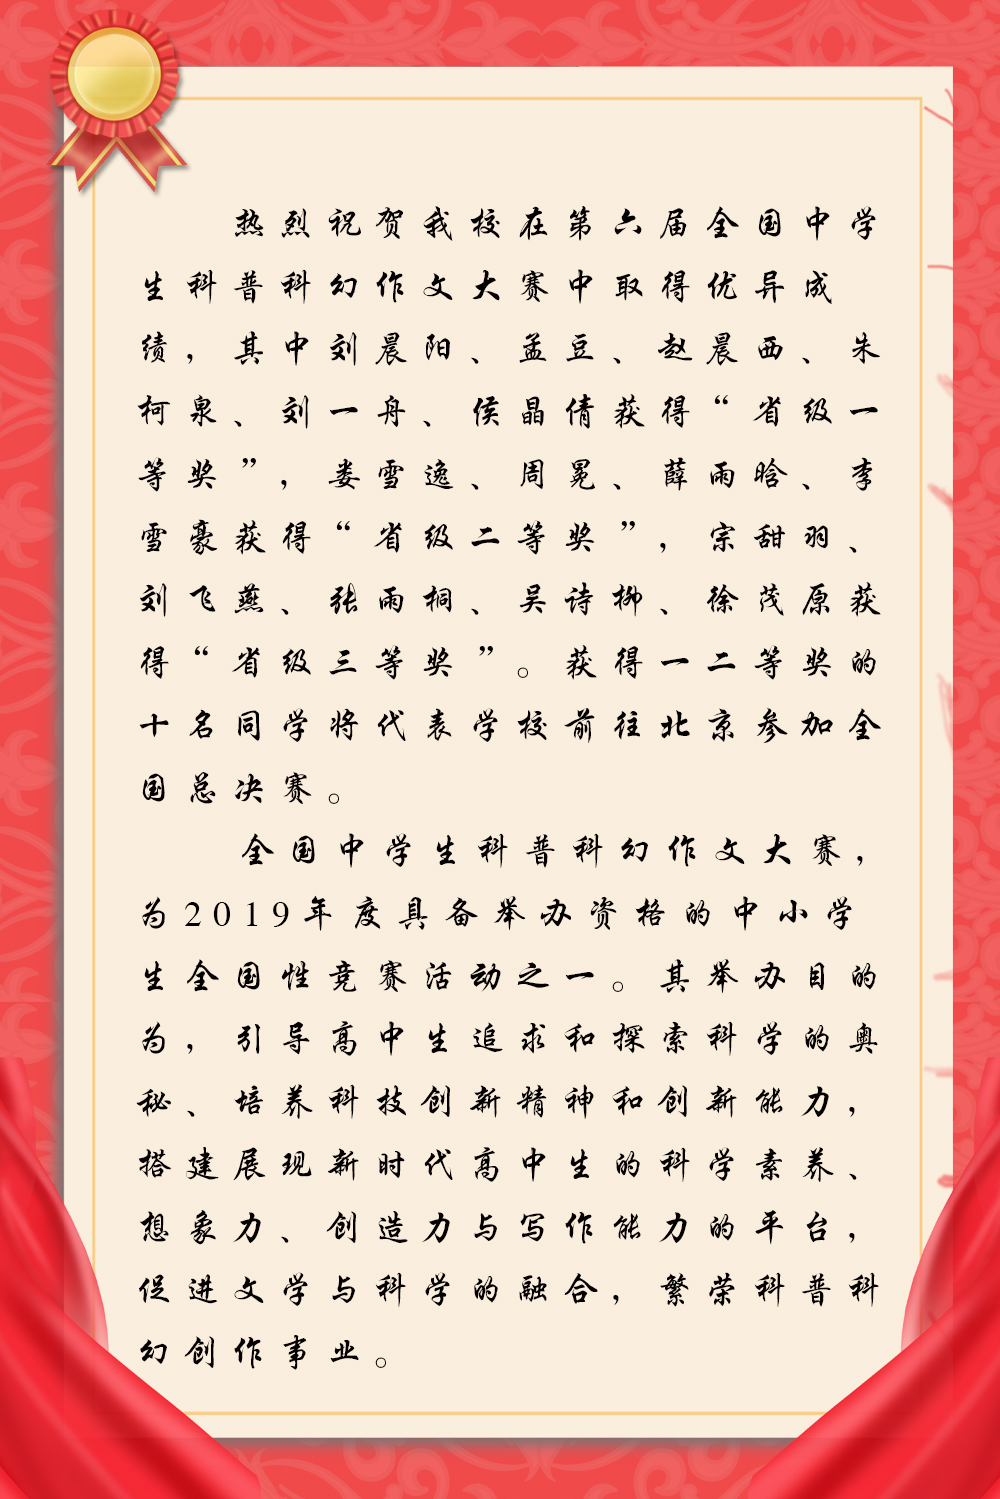 热烈祝贺我校在第六届全国中学
生科普科幻作文大赛中取得优异成
绩，其中刘晨阳、孟豆、赵晨西、朱
柯泉、刘一舟、侯晶倩获得“省级一
等奖”，娄雪逸、周冕、薛雨晗、李
雪豪获得“省级二等奖”，宗甜羽、
刘飞燕、张雨桐、吴诗柳、徐茂原获
得“省级三等奖”。获得一二等奖的
十名同学将代表学校前往北京参加全
国总决赛。
全国中学生科普科幻作文大赛，
为2019年度具备举办资格的中小学
生全国性竞赛活动之一。其举办目的
为，引导高中生追求和探索科学的奥
秘、培养科技创新精神和创新能力，
搭建展现新时代高中生的科学素养、
想象力、创造力与写作能力的平台，
促进文学与科学的融合，繁荣科普科
幻创作事业。